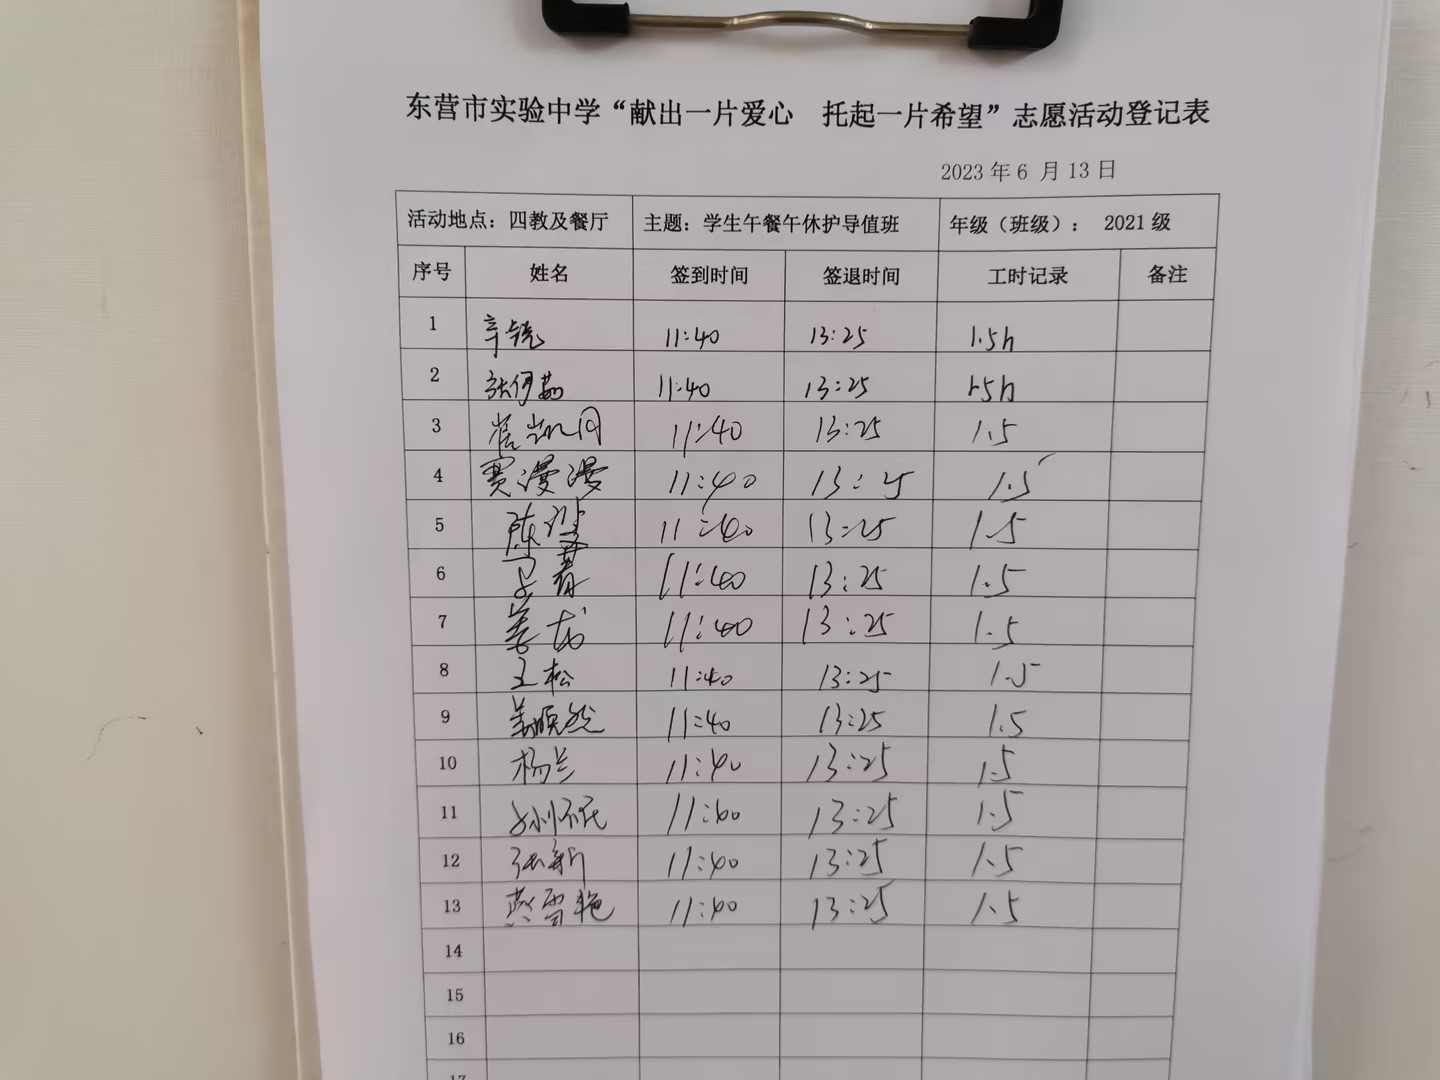 东营市实验中学“献出一片爱心 托起一片希望”志愿活动登记表
2023 年 6 月 13 日
活动地点：四教及餐厅 主题：学生午餐午休护导值班 年级（班级）： 2021 级
序号 姓名 签到时间 签退时间 工时记录 备注
1 辛锐 11:40 13:25 1.5h
2 11:40 13:25 1.5h
3 11:40 13:25 1.5
4 贾漫漫 11:40 13:25 1.5
5 陈 11:40 13:25 1.5
6 11:40 13:25 1.5
7 姜龙 11:40 13:25 1.5
8 王松 11:40 13:25 1.5
9 姜顺然 11:40 13:25 1.5
10 杨兰 11:40 13:25 1.5
11 11:40 13:25 1.5
12 张新 11:40 13:25 1.5
13 燕雪艳 11:40 13:25 1.5
14
15
16
17